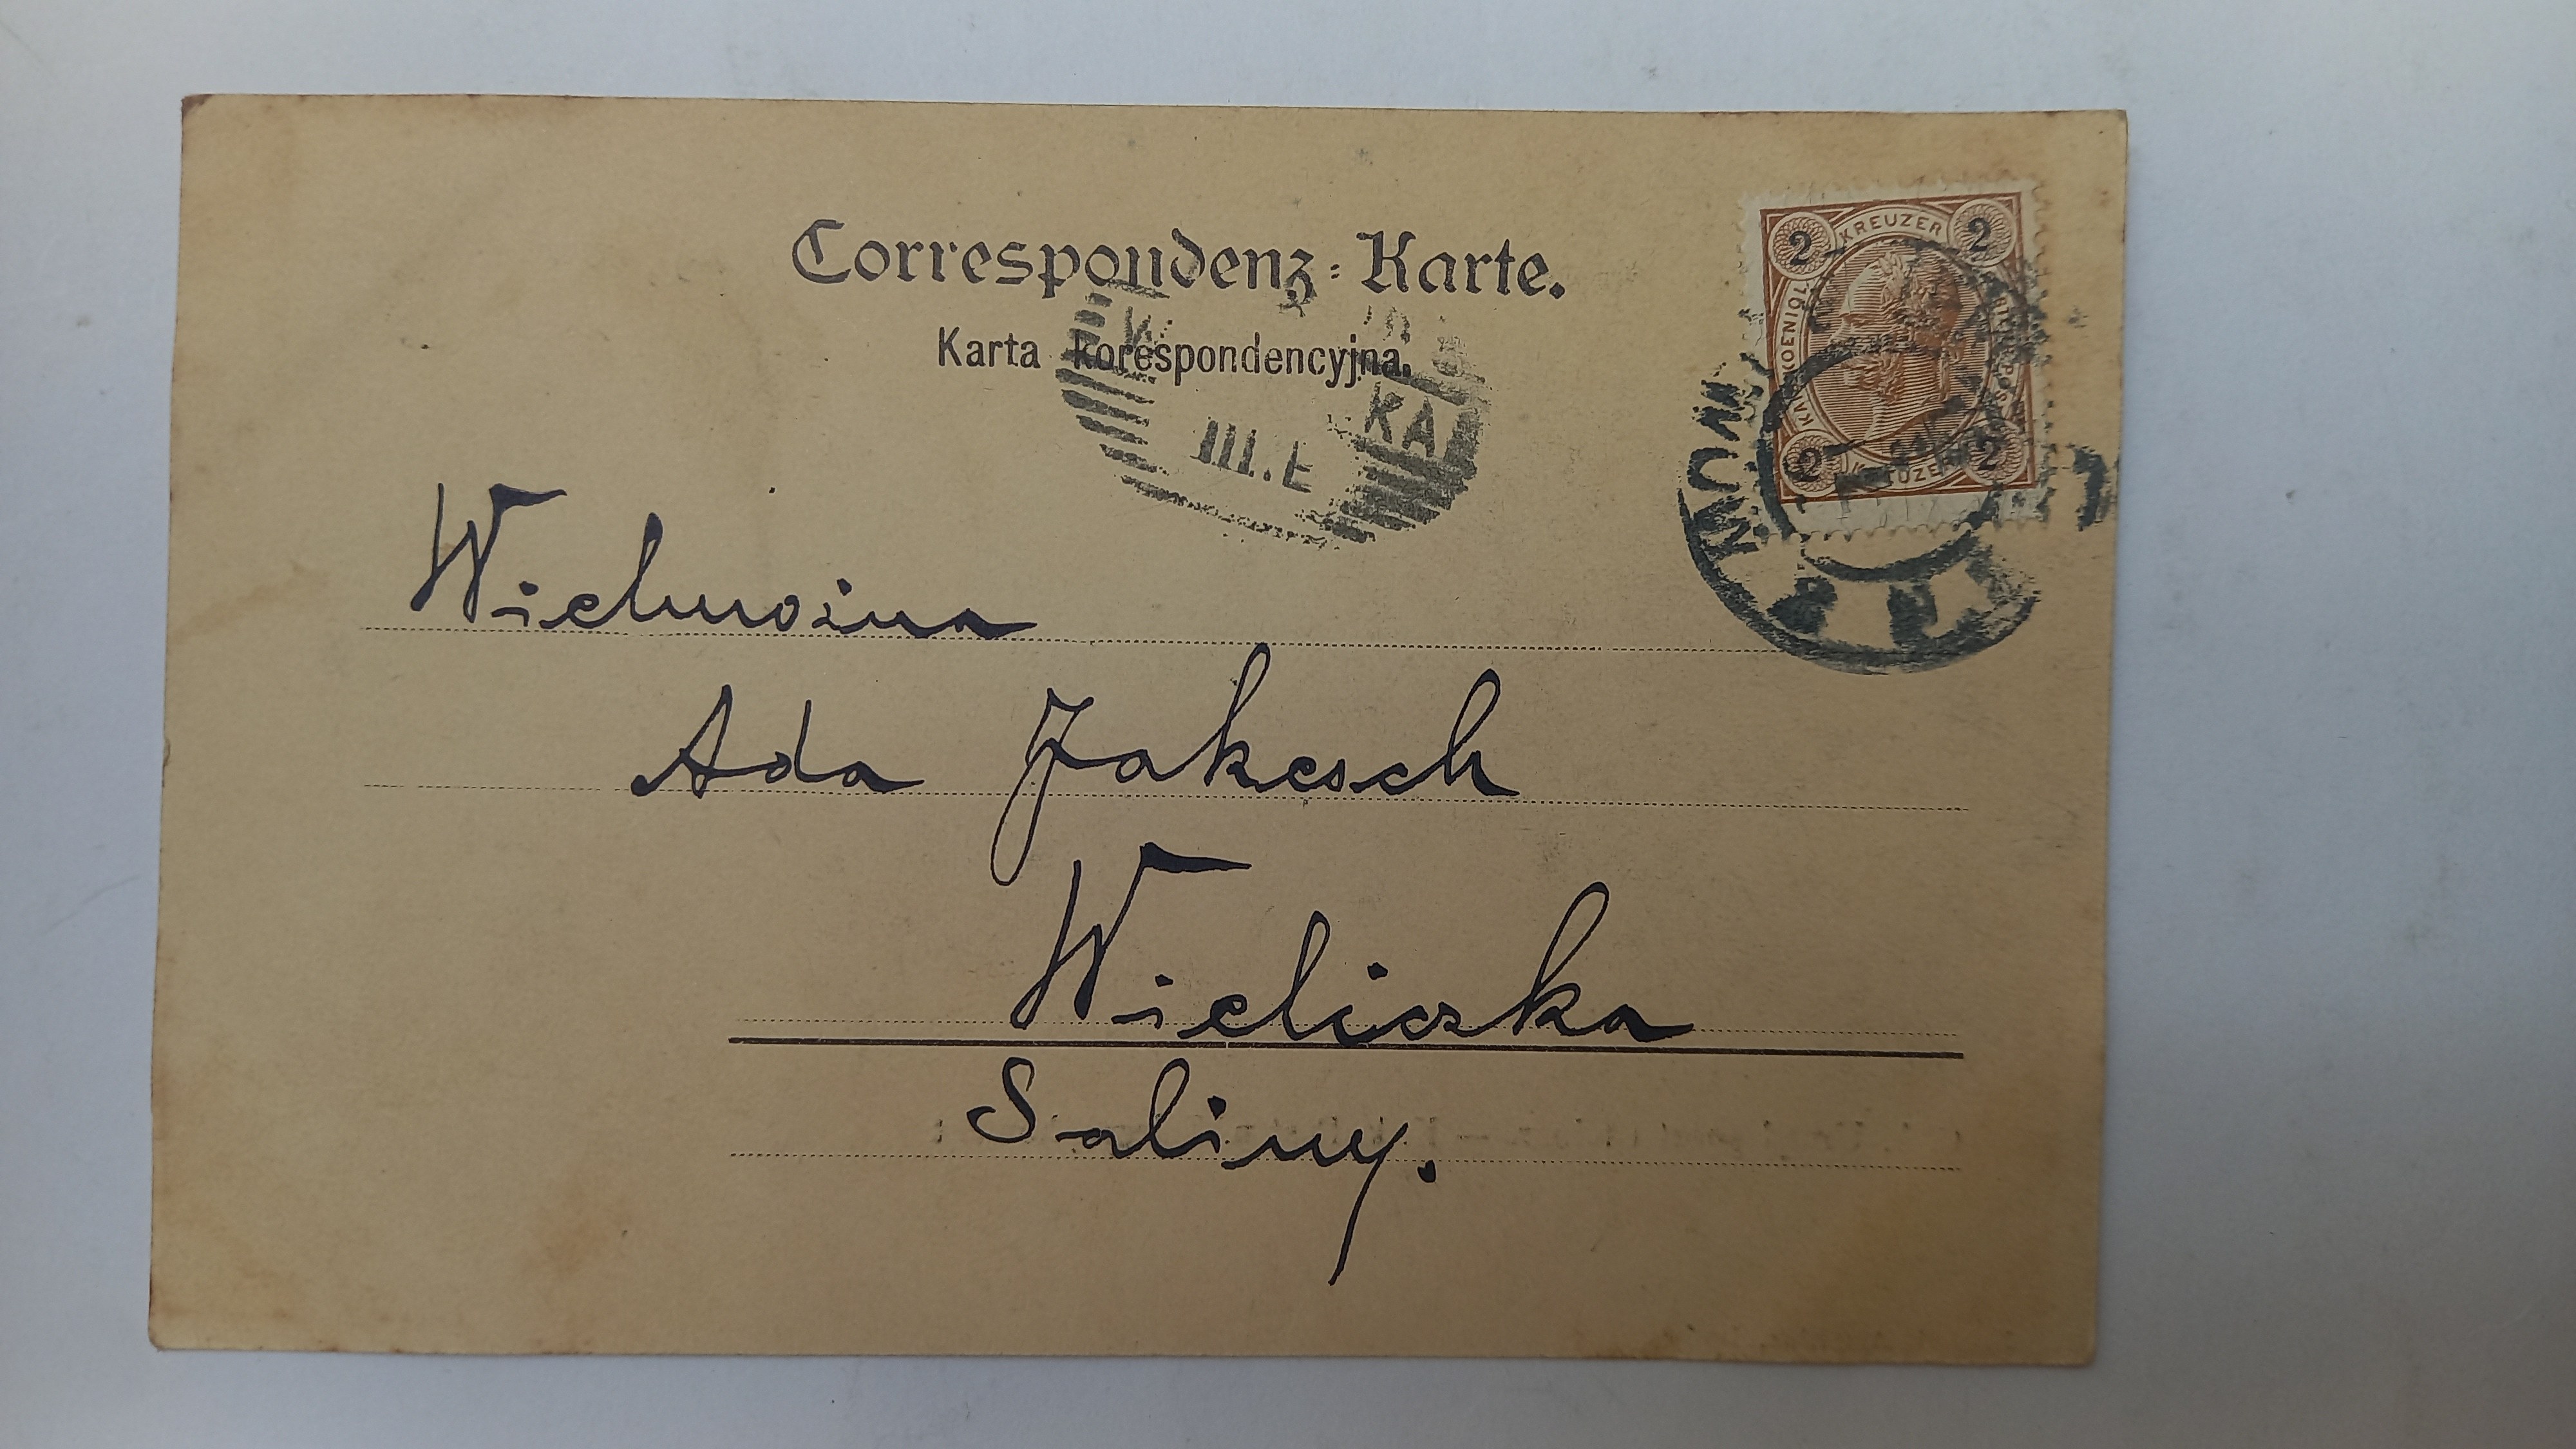 Correspondenz-Karte.
Karta korespondencyjna.
KREUZER
2 2
2 2
KA
III. E
Wielmożna
Ada Jakesch
Wieliczka
Saliny.